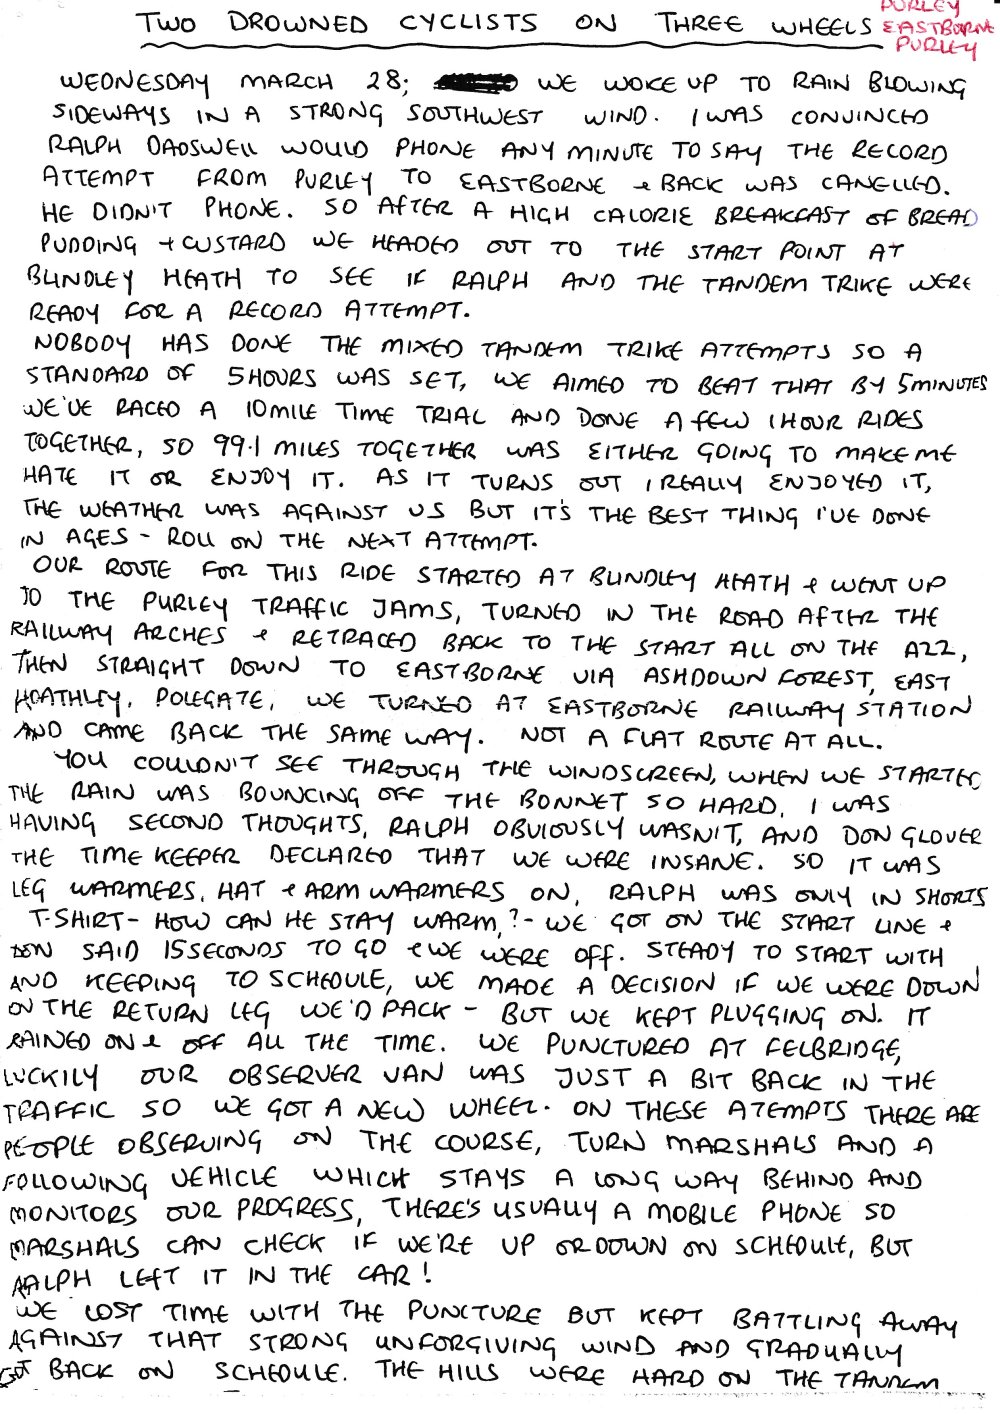 TWO DROWNED CYCLISTS ON THREE WHEELS
PURLEY
EASTBORNE
PURLEY
WEDNESDAY MARCH 28; WE WOKE UP TO RAIN BLOWING
SIDEWAYS IN A STRONG SOUTHWEST WIND. I WAS CONVINCED
RALPH DADSWELL WOULD PHONE ANY MINUTE TO SAY THE RECORD
ATTEMPT FROM PURLEY TO EASTBORNE & BACK WAS CANELLED.
HE DIDN'T PHONE. SO AFTER A HIGH CALORIE BREAKFAST OF BREAD
PUDDING + CUSTARD WE HEADED OUT TO THE START POINT AT
BLINDLEY HEATH TO SEE IF RALPH AND THE TANDEM TRIKE WERE
READY FOR A RECORD ATTEMPT.
NOBODY HAS DONE THE MIXED TANDEM TRIKE ATTEMPTS SO A
STANDARD OF 5HOURS WAS SET, WE AIMED TO BEAT THAT BY 5MINUTES
WE'VE RACED A 10MILE TIME TRIAL AND DONE A FEW 1HOUR RIDES
TOGETHER, SO 99.1 MILES TOGETHER WAS EITHER GOING TO MAKE ME
HATE IT OR ENJOY IT. AS IT TURNS OUT I REALLY ENJOYED IT,
THE WEATHER WAS AGAINST US BUT IT'S THE BEST THING I'VE DONE
IN AGES - ROLL ON THE NEXT ATTEMPT.
OUR ROUTE FOR THIS RIDE STARTED AT BLINDLEY HEATH & WENT UP
TO THE PURLEY TRAFFIC JAMS, TURNED IN THE ROAD AFTER THE
RAILWAY ARCHES & RETRACED BACK TO THE START ALL ON THE A22,
THEN STRAIGHT DOWN TO EASTBORNE VIA ASHDOWN FOREST, EAST
HOATHLEY, POLEGATE, WE TURNED AT EASTBORNE RAILWAY STATION
AND CAME BACK THE SAME WAY. NOT A FLAT ROUTE AT ALL.
YOU COULDN'T SEE THROUGH THE WINDSCREEN, WHEN WE STARTED
THE RAIN WAS BOUNCING OFF THE BONNET SO HARD, I WAS
HAVING SECOND THOUGHTS, RALPH OBVIOUSLY WASN'T, AND DON GLOVER
THE TIME KEEPER DECLARED THAT WE WERE INSANE. SO IT WAS
LEG WARMERS, HAT & ARM WARMERS ON, RALPH WAS ONLY IN SHORTS
T-SHIRT - HOW CAN HE STAY WARM,? - WE GOT ON THE START LINE &
DON SAID 15SECONDS TO GO & WE WERE OFF. STEADY TO START WITH
AND KEEPING TO SCHEDULE, WE MADE A DECISION IF WE WERE DOWN
ON THE RETURN LEG WE'D PACK - BUT WE KEPT PLUGGING ON. IT
RAINED ON & OFF ALL THE TIME. WE PUNCTURED AT FELBRIDGE,
LUCKILY OUR OBSERVER VAN WAS JUST A BIT BACK IN THE
TRAFFIC SO WE GOT A NEW WHEEL. ON THESE ATEMPTS THERE ARE
PEOPLE OBSERVING ON THE COURSE, TURN MARSHALS AND A
FOLLOWING VEHICLE WHICH STAYS A LONG WAY BEHIND AND
MONITORS OUR PROGRESS, THERE'S USUALLY A MOBILE PHONE SO
MARSHALS CAN CHECK IF WE'RE UP OR DOWN ON SCHEDULE, BUT
RALPH LEFT IT IN THE CAR!
WE LOST TIME WITH THE PUNCTURE BUT KEPT BATTLING AWAY
AGAINST THAT STRONG UNFORGIVING WIND AND GRADUALLY
GOT BACK ON SCHEDULE. THE HILLS WERE HARD ON THE TANDEM